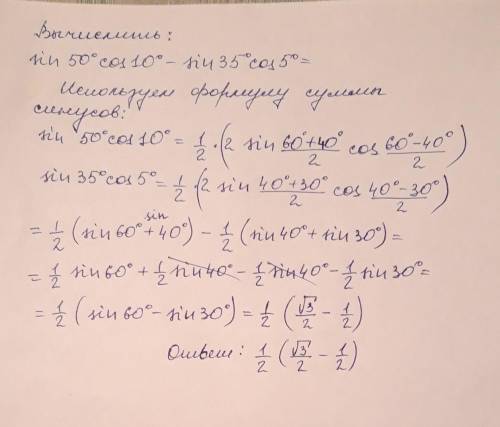 Вычислить:
sin 50° cos 10° - sin 35° cos 5° =
Используем формулу суммы
синусов:
sin 50° cos 10° = 1/2 · (2 sin (60°+40°)/2 cos (60°-40°)/2)
sin 35° cos 5° = 1/2 · (2 sin (40°+30°)/2 cos (40°-30°)/2)
= 1/2 (sin 60° + sin 40°) - 1/2 (sin 40° + sin 30°) =
= 1/2 sin 60° + 1/2 sin 40° - 1/2 sin 40° - 1/2 sin 30° =
= 1/2 (sin 60° - sin 30°) = 1/2 (√3/2 - 1/2)
Ответ: 1/2 (√3/2 - 1/2)